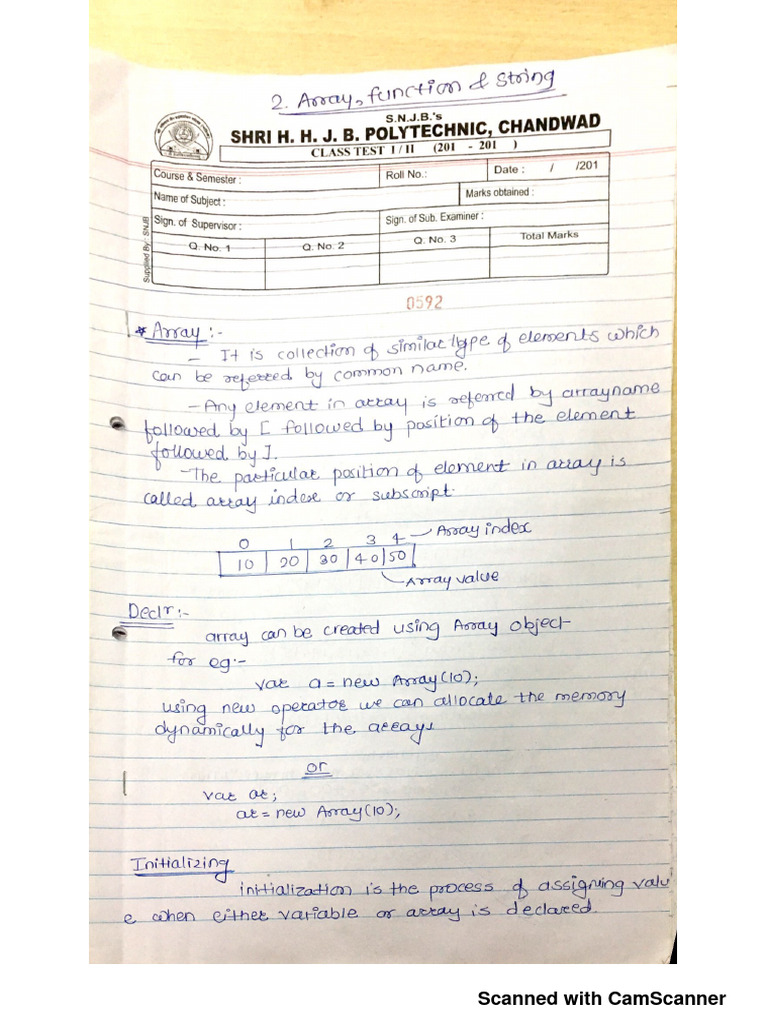 2. Array, function & string
S.N.J.B.'s
SHRI H. H. J. B. POLYTECHNIC, CHANDWAD
CLASS TEST I / II (201 - 201 )
Course & Semester :
Roll No.:
Date : / /201
Name of Subject :
Marks obtained :
Sign. of Supervisor :
Sign. of Sub. Examiner :
Q. No. 1
Q. No. 2
Q. No. 3
Total Marks
Supplied By : SNJB
0592
* Array :-
- It is collection of similar type of elements which
can be referred by common name.
- Any element in array is referred by arrayname
followed by [ followed by position of the element
followed by ].
- The particular position of element in array is
called array index or subscript.
0 1 2 3 4 - Array index
10 20 30 40 50
Array value
Declr :-
array can be created using Array object
for eg:-
var a = new Array(10);
using new operator we can allocate the memory
dynamically for the arrays
or
var ar;
ar = new Array(10);
Initializing
initialization is the process of assigning valu
e when either variable or array is declared.
Scanned with CamScanner